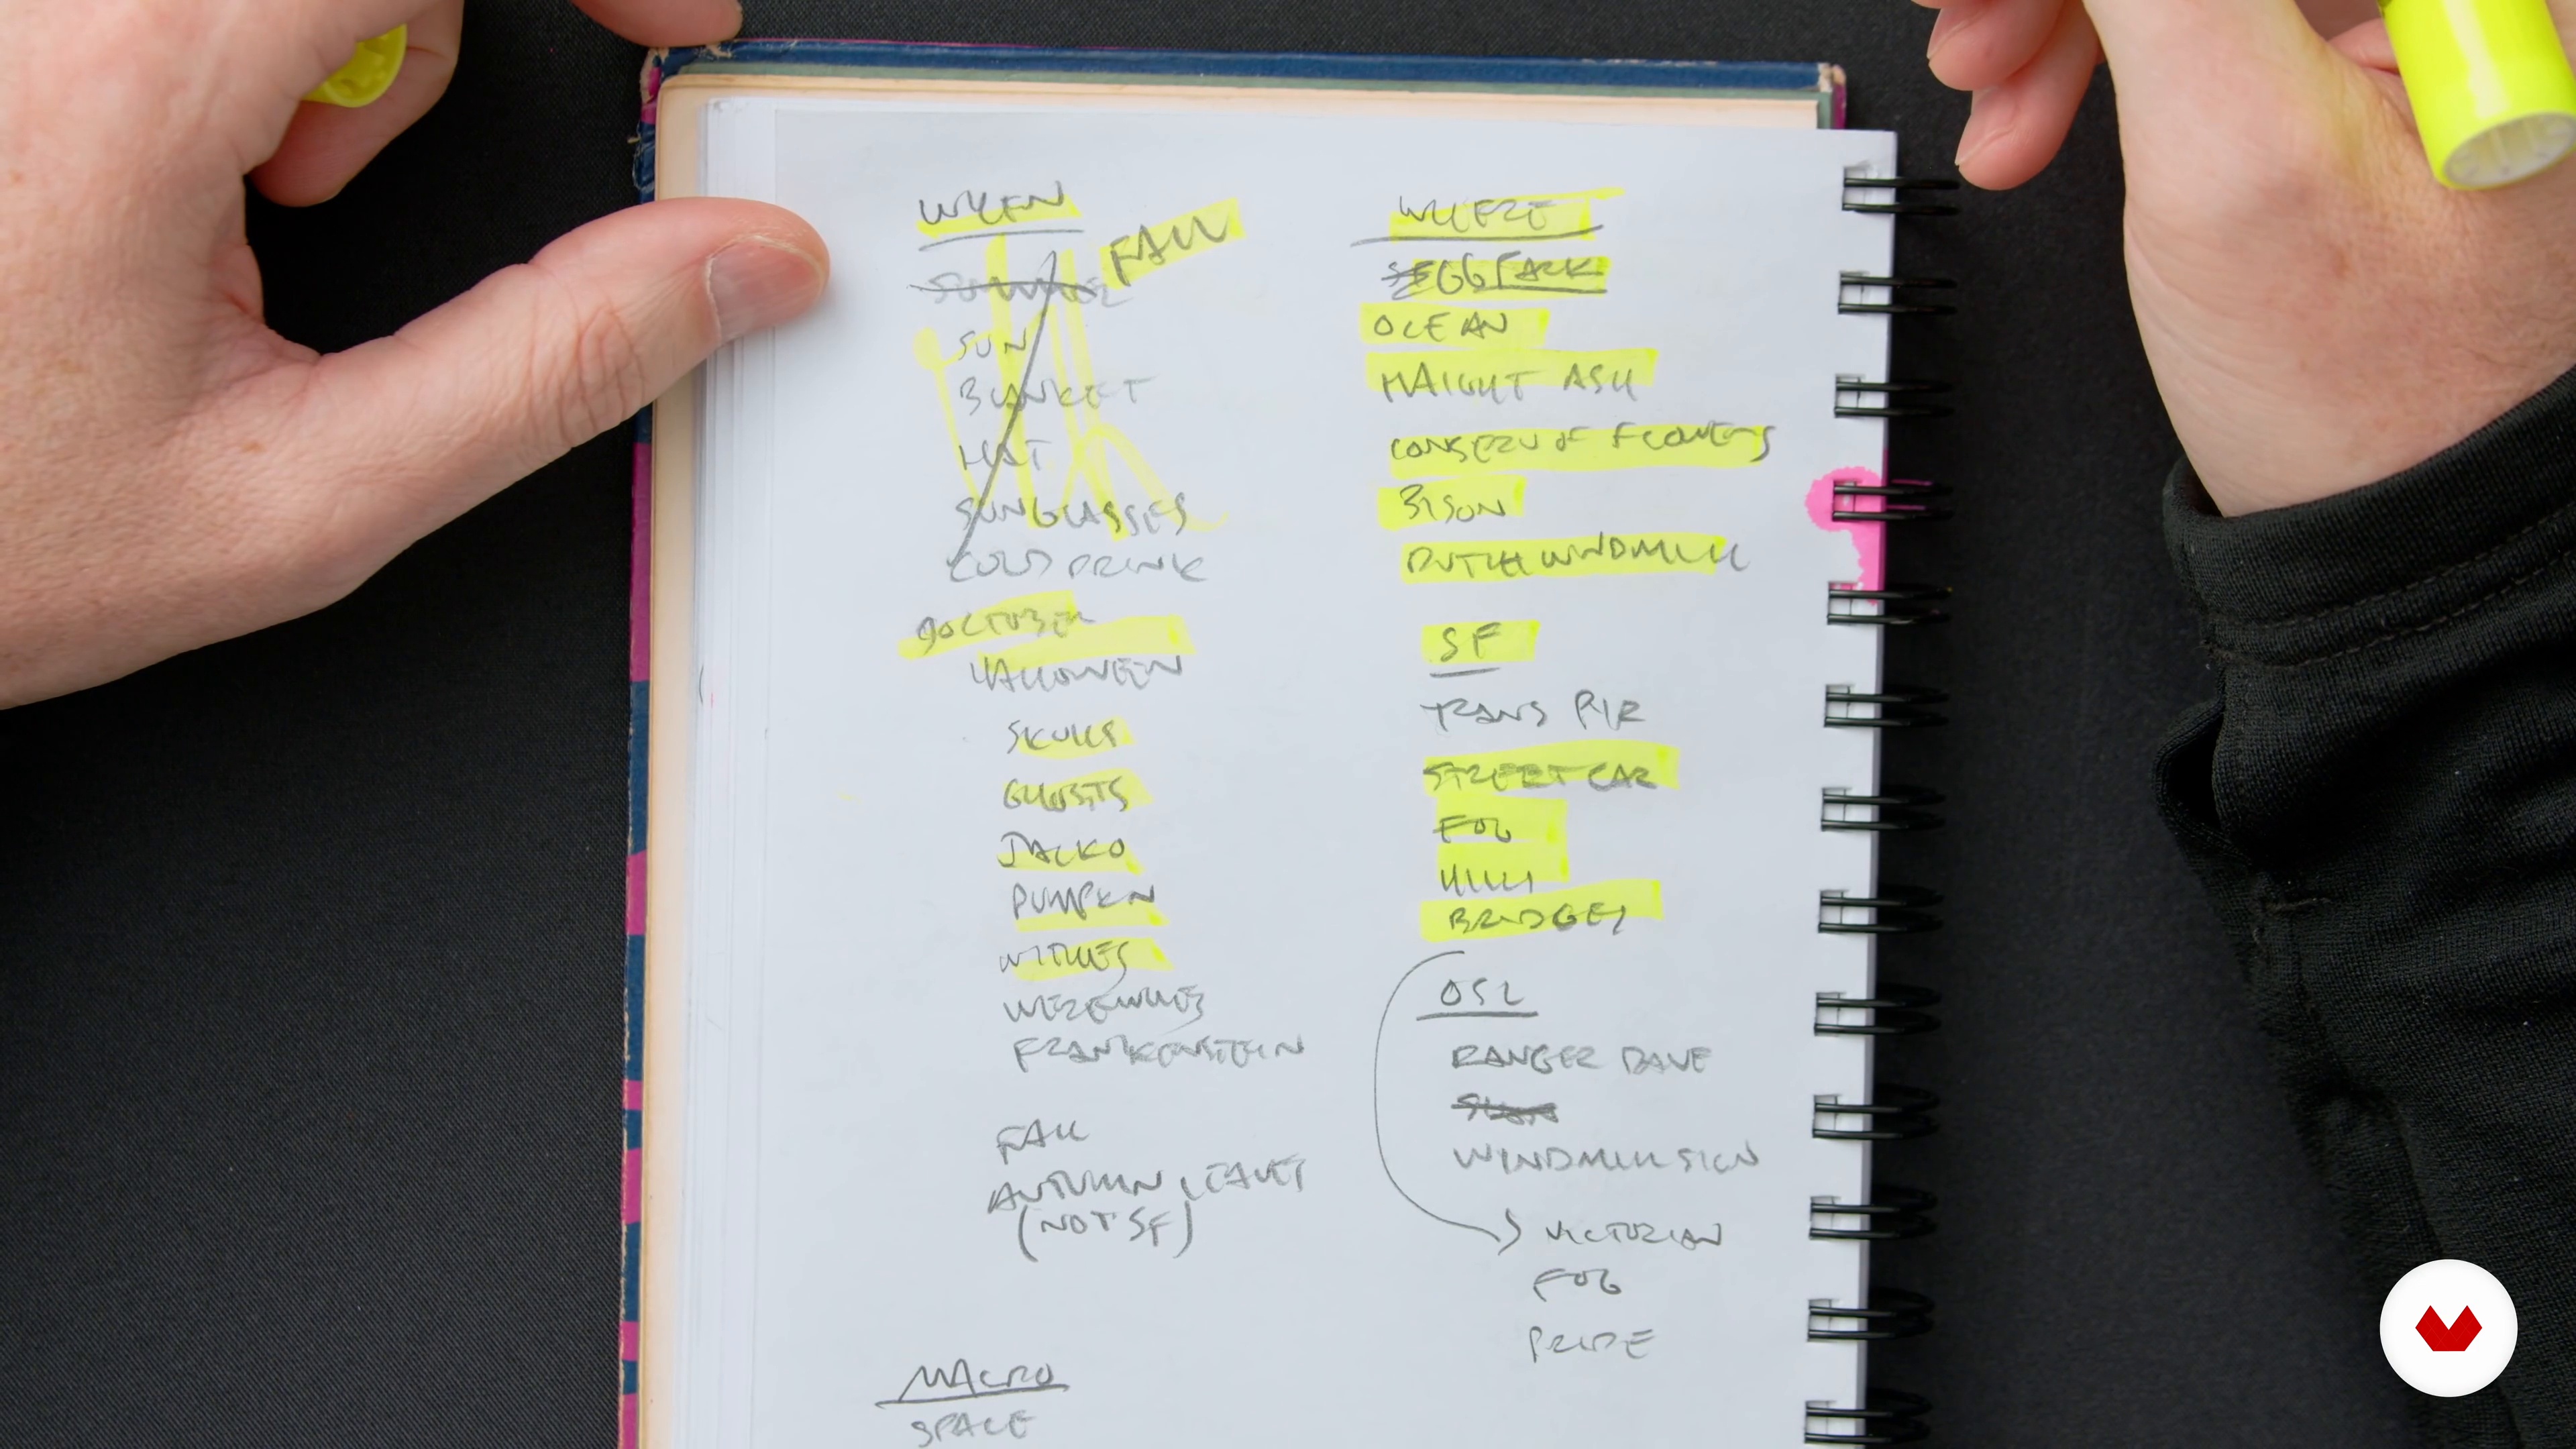 WHEN
FALL
SUMMER
SUN
BLANKET
HAT
SUNGLASSES
COLD DRINK
OCTOBER
HALLOWEEN
SKULLS
GHOSTS
JACKO
PUMPKIN
WITCHES
WEREWOLVES
FRANKENSTEIN
FALL
AUTUMN LEAVES
(NOT SF)
MACRO
SPACE
WHERE
GG PARK
OCEAN
HAIGHT ASH
CONSERV OF FLOWERS
BISON
DUTCH WINDMILL
SF
TRANS PYR
STREETCAR
FOG
HILLS
BRIDGES
OSL
RANGER DAVE
WINDMILL SIGN
VICTORIAN
FOG
PRIDE